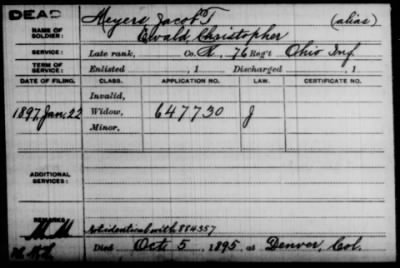 DEAD
NAME OF SOLDIER:
Meyers Jacob T (alias)
Ewald, Christopher
SERVICE:
Late rank, Co. K, 76 Reg't Ohio Inf
TERM OF SERVICE:
Enlisted , 1 Discharged , 1
DATE OF FILING. CLASS. APPLICATION NO. LAW. CERTIFICATE NO.
Invalid,
1897, Jan. 22 Widow, 647730 J
Minor,
ADDITIONAL SERVICES:
REMARKS:
Not identical with 884357
Died Oct 5 1895, at Denver, Col.